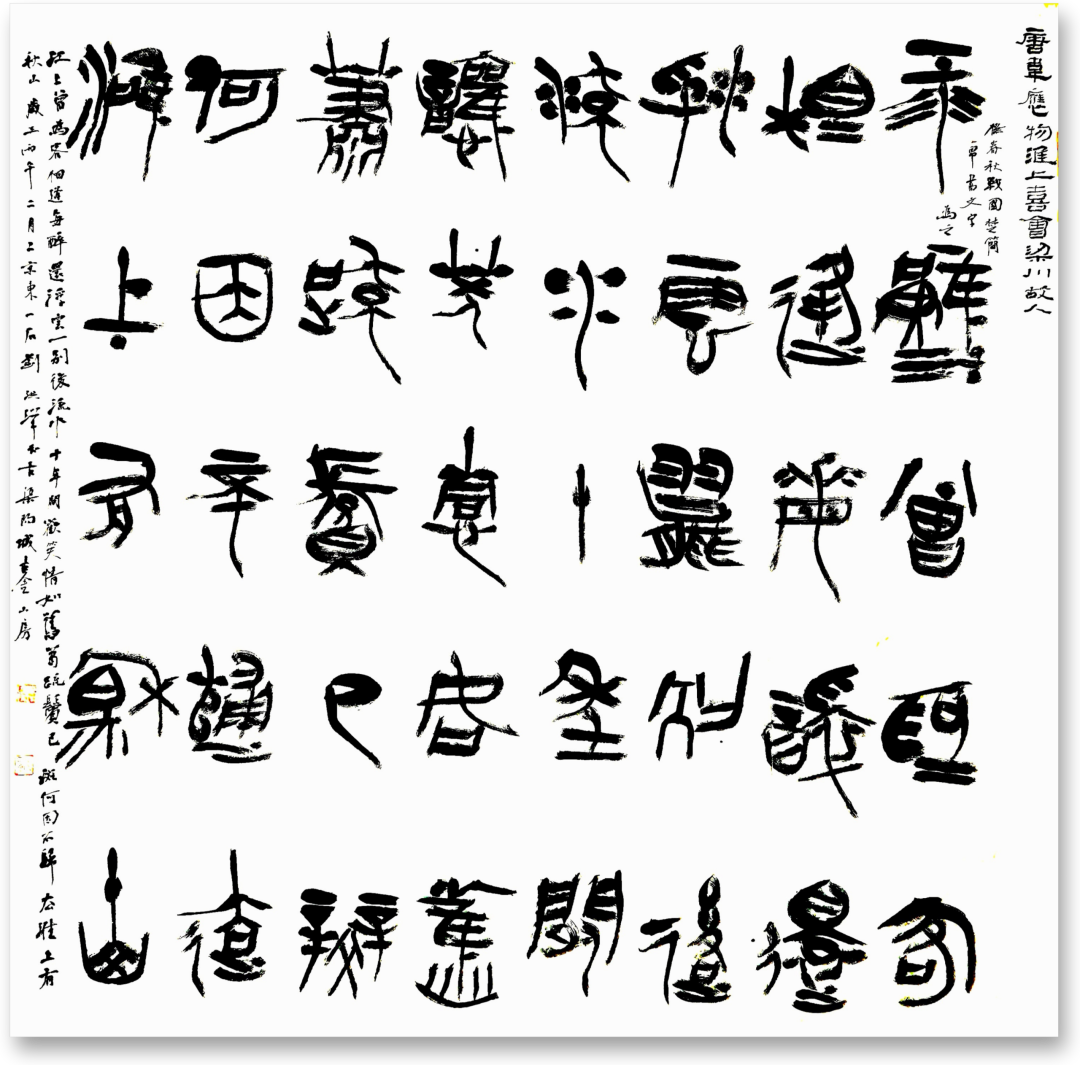 唐韋應物淮上喜會梁川故人
春秋戰國楚簡
帛書文字
為之
江漢曾為客
相逢每醉還
浮雲一別後
流水十年間
歡笑情如舊
蕭疏鬢已斑
何因不歸去
淮上有秋山
江上曾為客相逢每醉還浮雲一別後流水十年間歡笑情如舊蕭疏鬢已斑何因不歸去淮上有
秋山 歲在丙午二月上京東一石劉 古梁陶城 山房